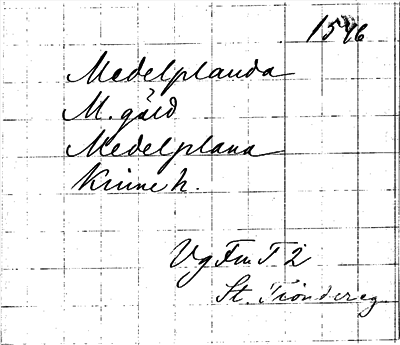 1546
Medelplanda
M. gäld
Medelplana
Kinneh.
Vg Fm T 2
St. Tiondereg